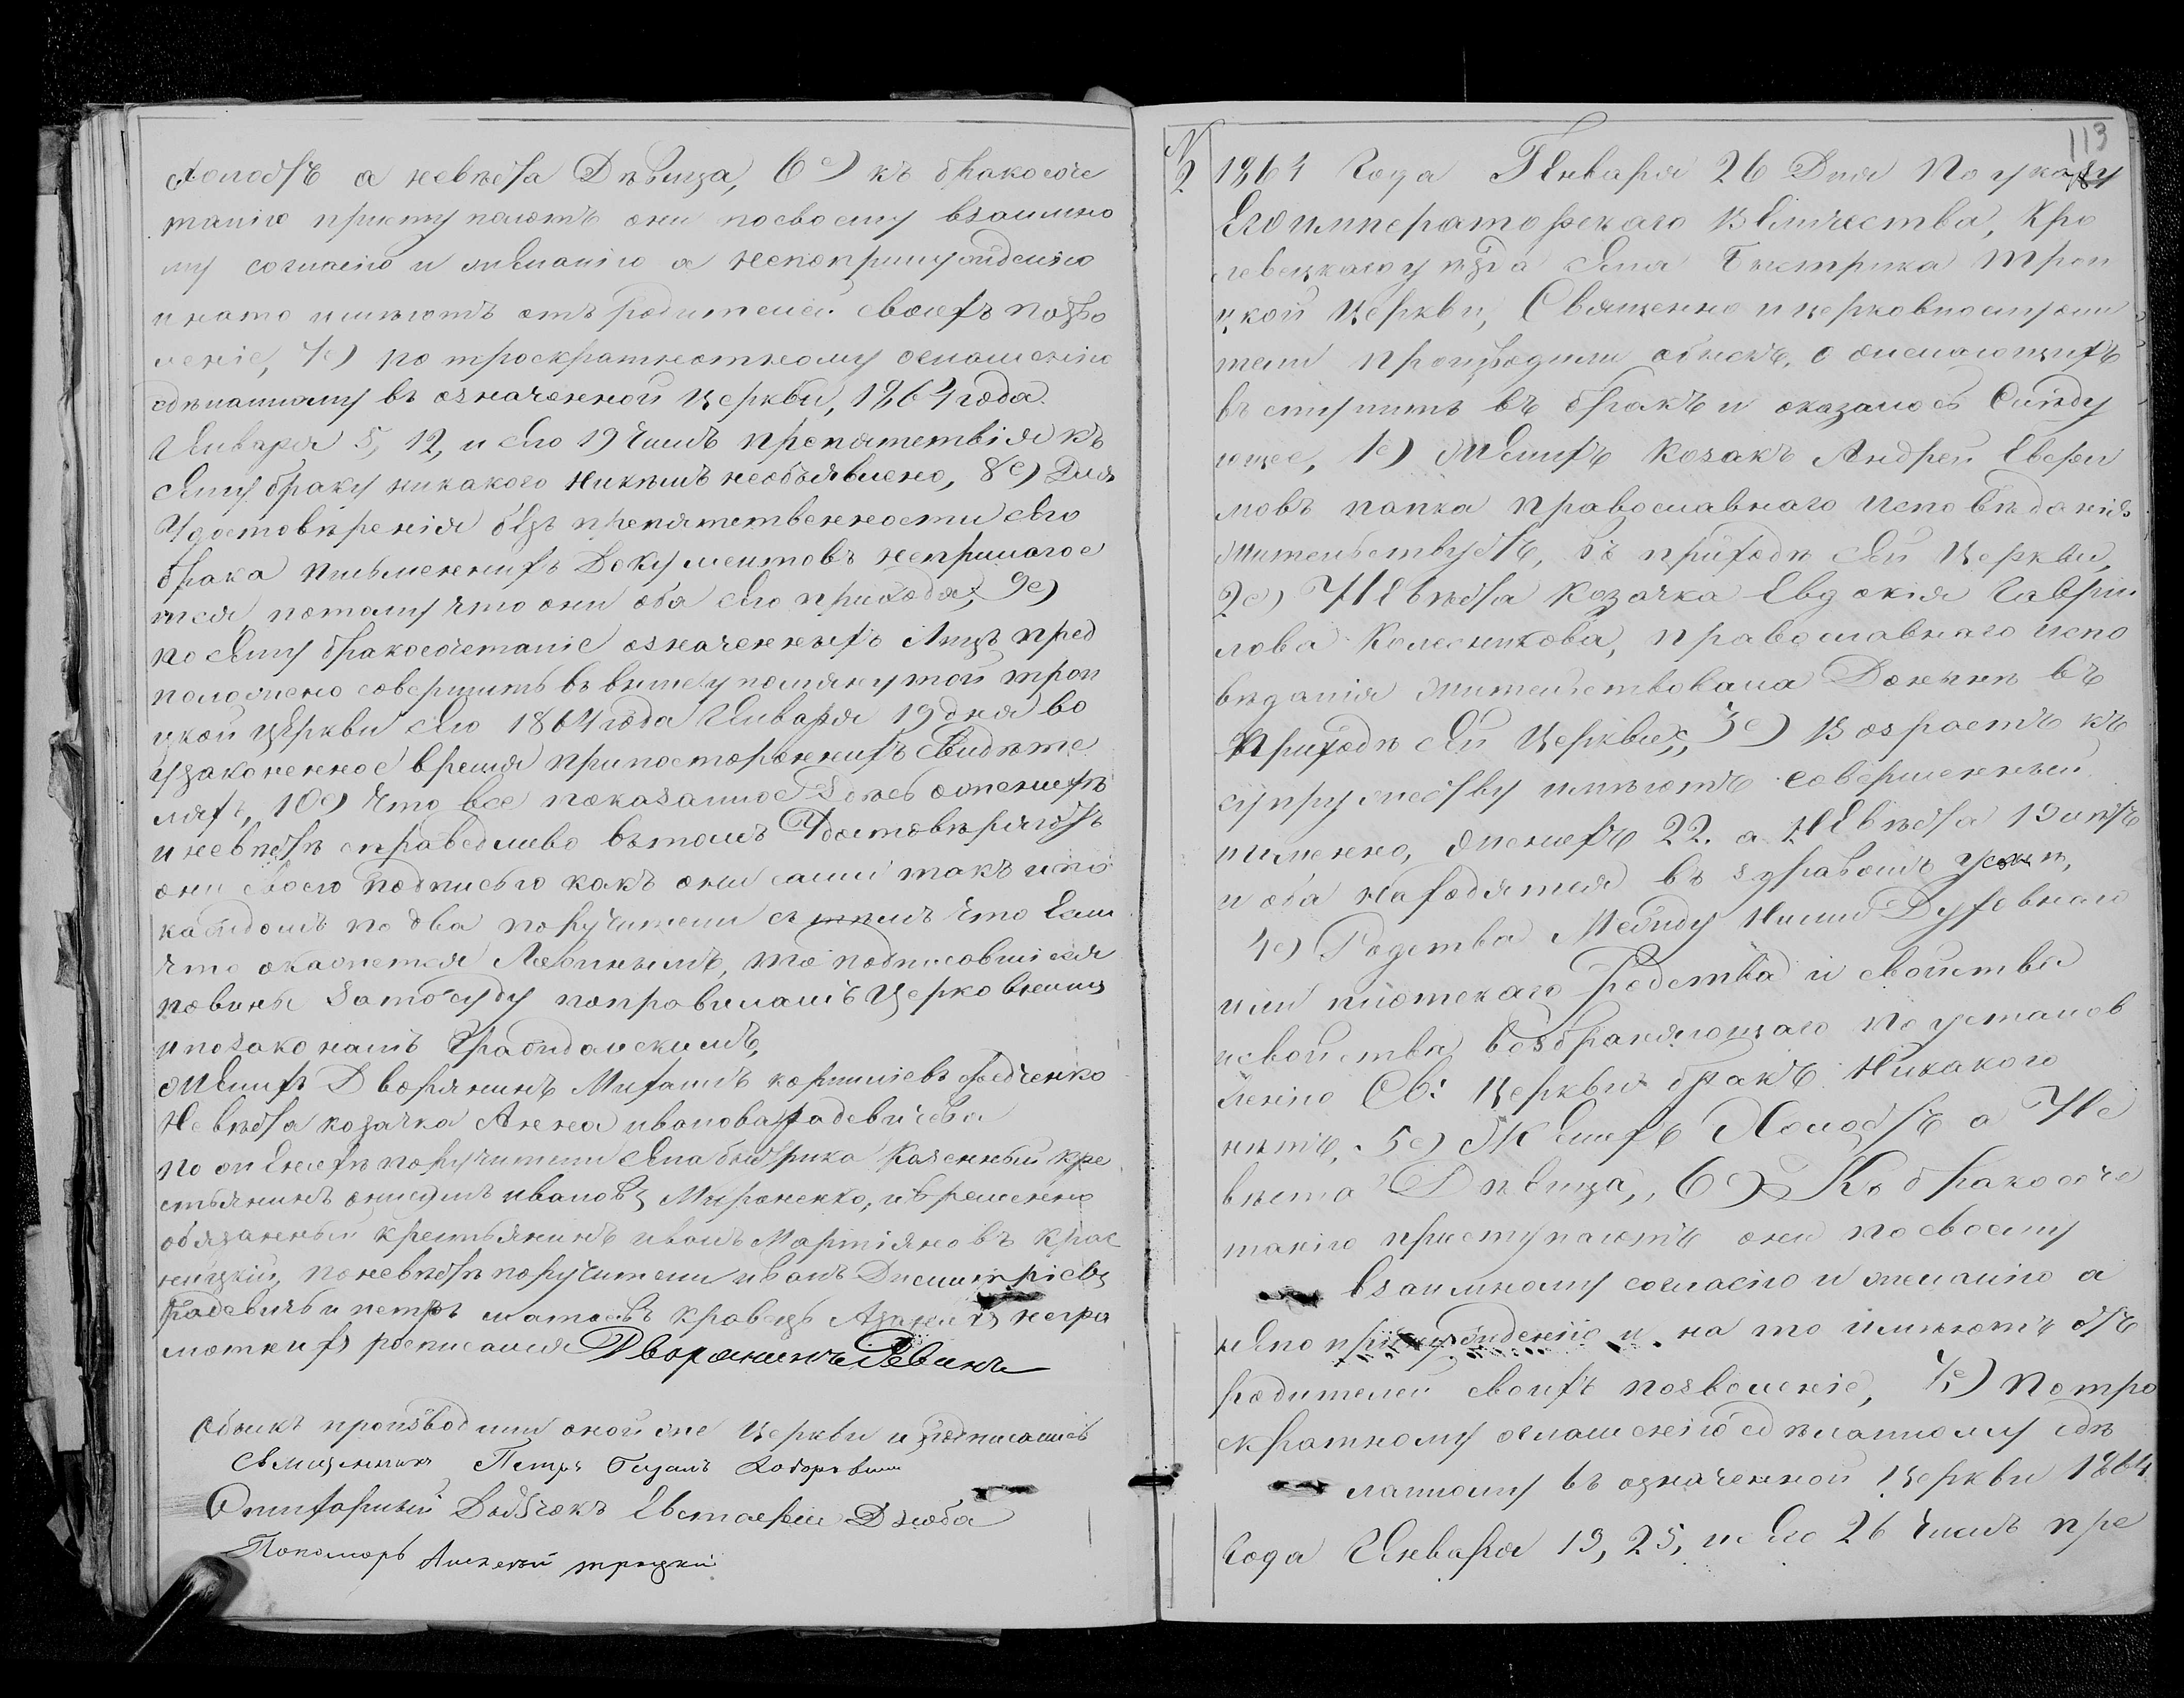 холостъ а невѣста Дѣвица, 6е) къ бракосоче
танію приступаютъ они посвоему взаимно
му согласію и желанію а непопринужденію
и нато имѣютъ отъ родителей своихъ позво
леніе, 7е) по троекратностному оглашенію
сдѣланному въ означенной Церкви, 1864 года
Января 5, 12, и сего 19 чиселъ препятствія къ
сему браку никакого никѣмъ необъявлено, 8е) Для
Удостовѣренія безъ препятственности сего
брака письменнихъ Документовъ неприлагае
тся, потому что они оба сего прихода, 9е)
по сему бракосочетаніе означенныхъ Лицъ пред
положено совершить въ вышеупомянутой трои
цкой церкви сего 1864 года Января 19 дня во
узаконенное время припосторонних Свидѣте
ляхъ, 10е) что все показанное здесь оженихѣ
и невѣстѣ справедливо вътомъ Удостовѣряютъ
они своею подписью какъ они сами такъ и по
каждомъ по два поручители съ тѣмъ что Если
что окажется Ложнымъ, то подписавшіеся
повины зато суду поправиламъ Церковнимъ
и позаконамъ Гражданскимъ,
Женихъ Дворянинъ Михаилъ корнилiевъ федченко
Невѣста козачка Анна иванова радевичева
по Женихѣ поручители села быстрика Казенный кре
стьянинъ ивановъ Мироненко, и временно
обязанный крестьянинъ иванъ Мартіяновъ крас
ницкій, поневѣстѣ поручители иванъ Дмитріевъ
радевичъ и петръ матвеевъ кравецъ Азанихъ негра
мотнихъ росписался Дворянинъ Левинъ
Обыскъ производили оной же Церкви и подписались
Священникъ Петръ
Дьячокъ Евстафiй Дзюба
Пономарь Алексѣй троцкий
113
№
2
1864 Года Генваря 26 Дня По указу
Его императорскаго ВЕличества, Кро
левецкаго уѣзда села Быстрика трои
цкой Церкви, Священно и церковнослужи
тели производили обыскъ, о желающихъ
вступить въ бракъ и оказалось Слѣду
ющее, 1е) Женихъ Козакъ Андрей Евфи
мовъ папка православнаго исповѣданія
жительствуетъ, въ приходѣ сей Церкви,
2е) НЕвѣста Козачка Евдокія Гаври
лова Колесникова, православнаго испо
вѣданія жительствовала Донынѣ въ
приходѣ сей Церкви, 3е) Возрастъ къ
супружеству имѣютъ совершенный
именно, женихъ 22. а НЕвѣста 19 лѣтъ
и оба находятся въ здравомъ умѣ,
4е) Родства Между Ними Духовнаго
или плотскаго Родства и свойства
и свойства возбраняющаго по установ
ленію Св: Церкви бракъ Никакого
нѣтъ, 5е) Женихъ Холостъ а Не
вѣста Дѣвица, 6е) Къ бракосоче
танію приступаютъ они по своему
взаимному согласію и желанію а
непопринужденію и на то имѣютъ отъ
родителей своихъ позволеніе, 7е) По тро
екратному оглашенію сдѣланному сдѣ
ланному въ означенной Церкви 1864
Года Января 19, 25, и сего 26 чиселъ пре